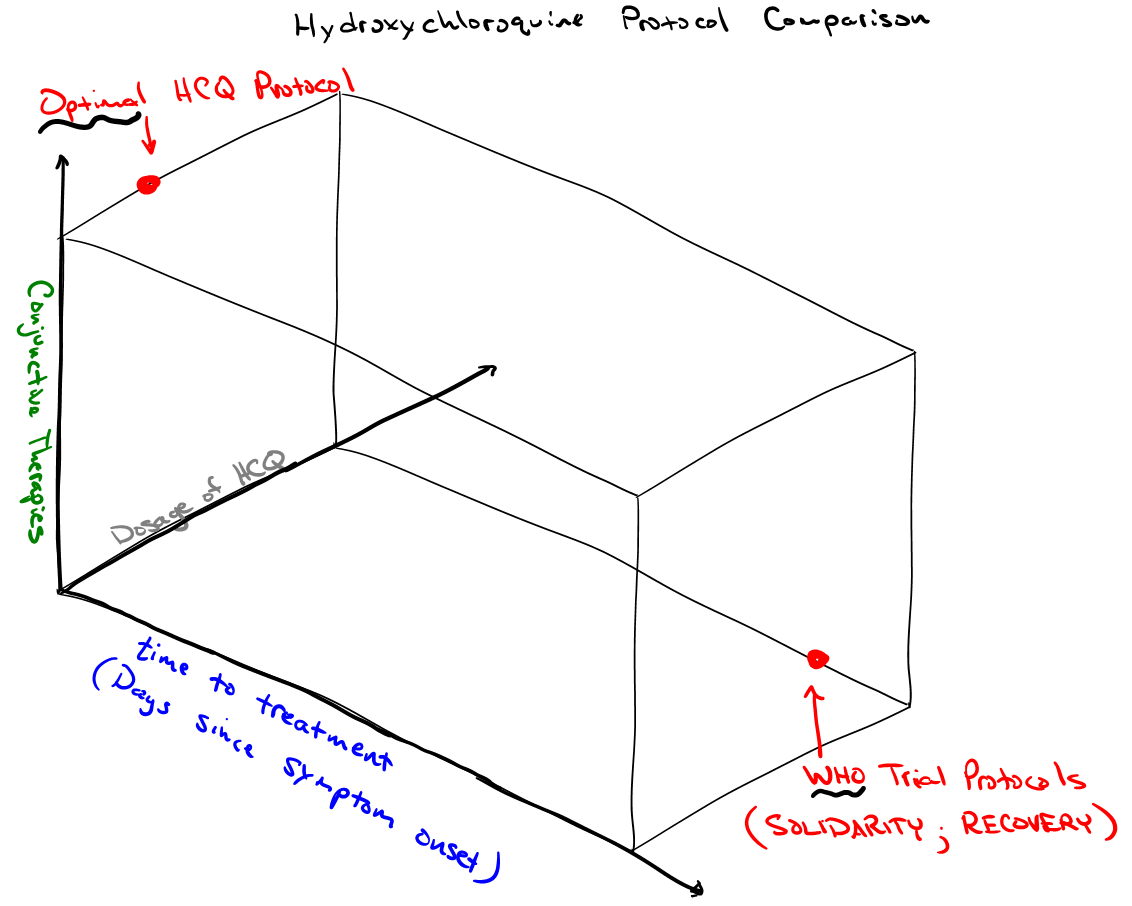 Hydroxychloroquine Protocol Comparison
Optimal HCQ Protocol
Conjunctive Therapies
Dosage of HCQ
time to treatment
(Days since symptom onset)
WHO Trial Protocols
(SOLIDARITY; RECOVERY)